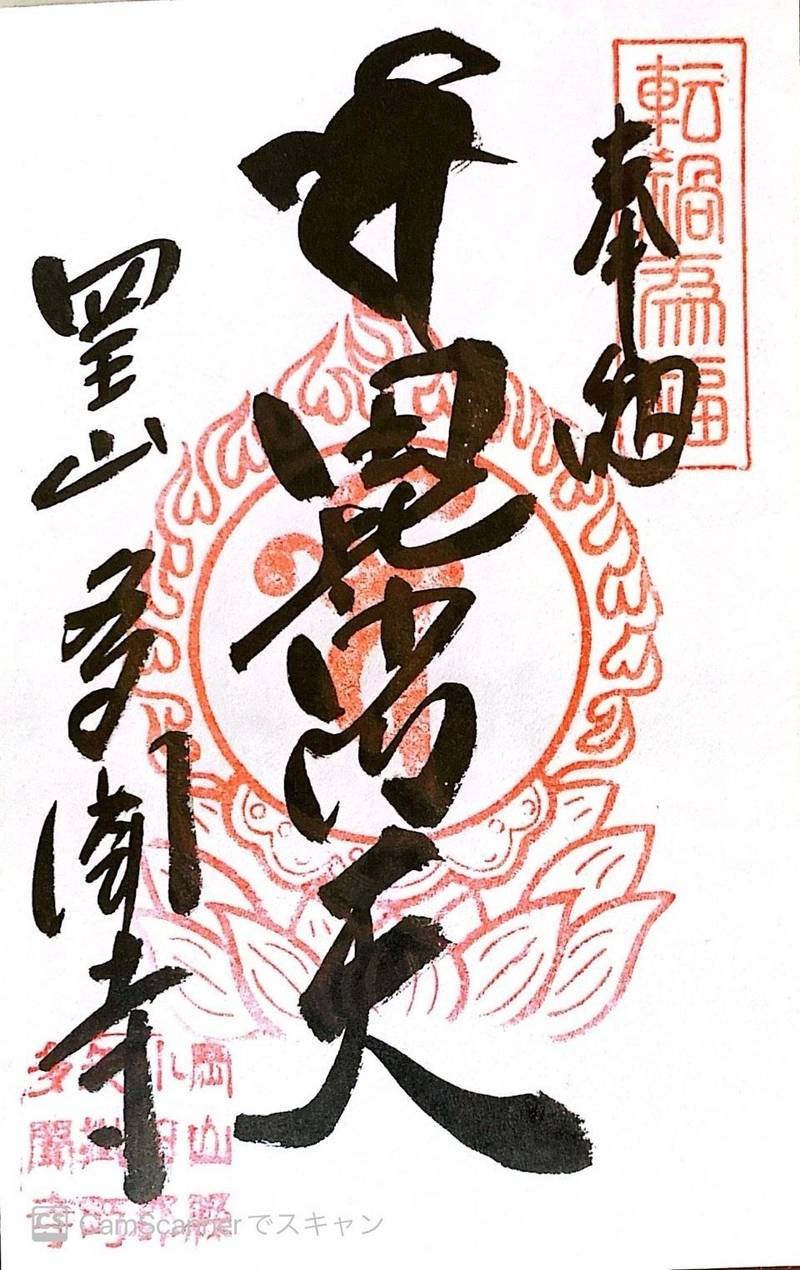 転禍為福
奉納
毘沙門天
岡山
多聞寺
岡山縣
多聞寺
CamScannerでスキャン